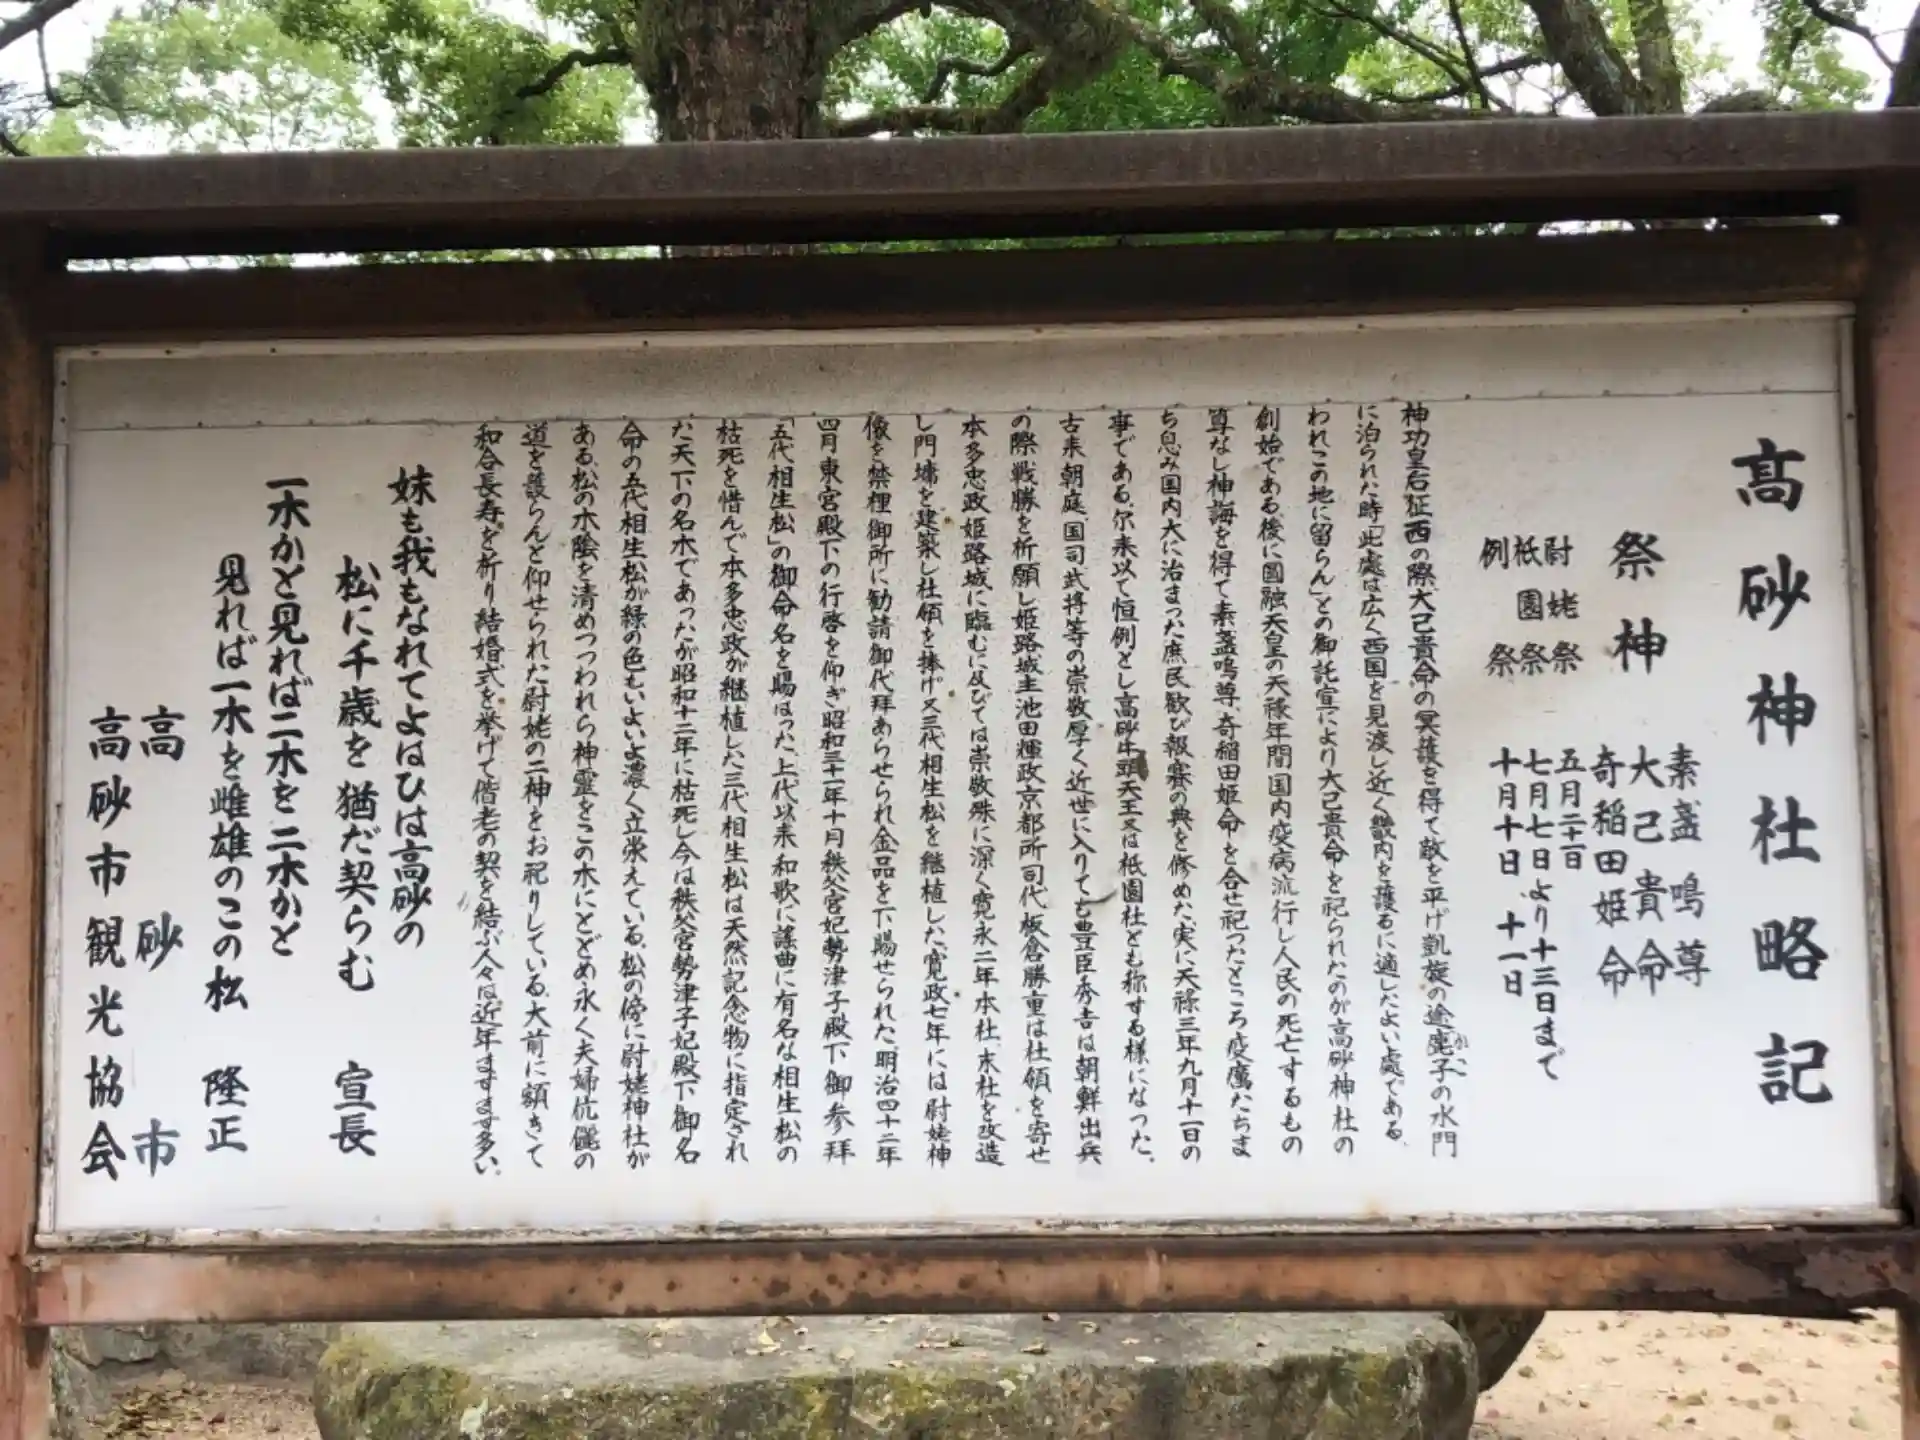 高砂神社略記
祭神
素盞鳴尊
大己貴命
奇稲田姫命
尉姥祭 五月二十一日
祇園祭 七月七日より十三日まで
例祭 十月十日、十一日
神功皇后征西の際大己貴命の冥護を得て敵を平げ凱旋の途鹿子の水門
に泊られた時「此處は広く西国を見渡し近く畿内を護るに適したよい處である、
われこの地に留らん」との御託宣により大己貴命を祀られたのが高砂神社の
創始である。後に圓融天皇の天禄年間国内疫病流行し人民の死亡するもの
算なし神誨を得て素盞鳴尊、奇稲田姫命を合せ祀つたところ疫癘たちま
ち息み国内大に治まつた庶民歓び報賽の典を修めた、実に天禄三年九月十一日の
事である。尓来以て恒例とし高砂牛頭天王又は祇園社とも称する様になつた。
古来朝庭、国司武将等の崇敬厚く近世に入りても豊臣秀吉は朝鮮出兵
の際戦勝を祈願し姫路城主池田輝政京都所司代板倉勝重は社領を寄せ
本多忠政姫路城に臨むに及びては崇敬殊に深く寛永二年本社、末社を改造
し門墉を建築し社領を捧げ又三代相生松を継植した、寛政七年には尉姥神
像を禁裡御所に勧請御代拜あらせられ金品を下賜せられた、明治四十二年
四月東宮殿下の行啓を仰ぎ昭和三十一年十月秩父宮妃勢津子殿下御参拜
「五代相生松」の御命名を賜はつた、上代以来和歌に謡曲に有名な相生松の
枯死を惜んで本多忠政が継植した三代相生松は天然記念物に指定され
た天下の名木であつたが昭和十二年に枯死し今は秩父宮勢津子妃殿下御名
命の五代相生松が緑の色もいよいよ濃く立栄えている。松の傍に尉姥神社が
ある、松の木陰を清めつつわれら神霊をこの木にとどめ永く夫婦伉儷の
道を護らんと仰せられた尉姥の二神をお祀りしている、大前に額きて
和合長寿を祈り結婚式を挙げて偕老の契を結ぶ人々は近年ますます多い。
妹も我もなれてよはひは高砂の
松に千歳を猶だ契らむ 宣長
一木かと見れば二木を二木かと
見れば一木を雌雄のこの松 隆正
高砂市
高砂市観光協会